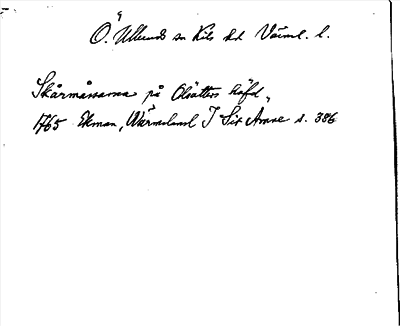 Ö. Ullerud sn Kils hd Värml. l.
Skårmåssarna på Olsätters häfd,
1765 Ekman, Wärmeland I Sit Amne s. 386